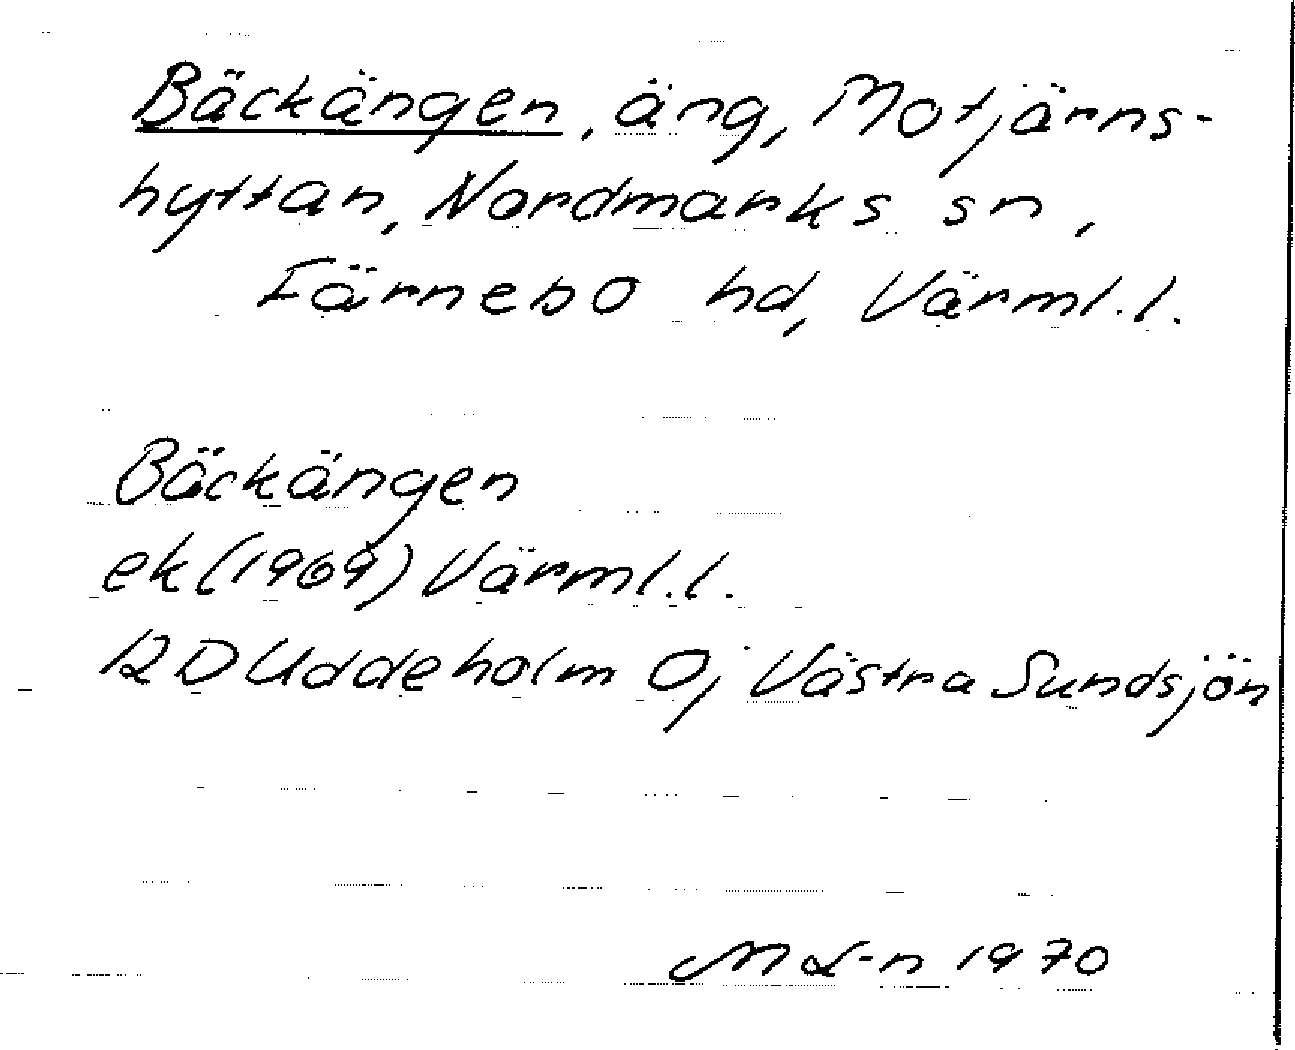 Bäckängen, äng, Motjärns-
hyttan, Nordmarks sn,
Färnebo hd, Värml. l.
Bäckängen
ek (1969) Värml. l.
12 D Uddeholm 0j Västra Sundsjön
M L-n 1970